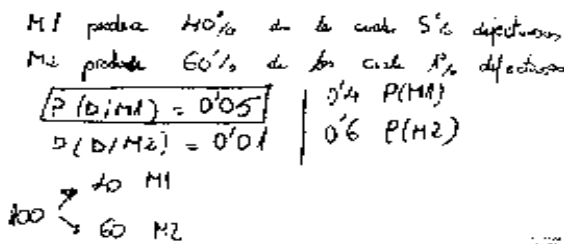 M1 produce 40% de la cuales 5% defectuosos
M2 produce 60% de los cuale 1% defectuosos
P(D/M1) = 0'05 0'4 P(M1)
P(D/M2) = 0'01 0'6 P(M2)
100 40 M1
60 M2